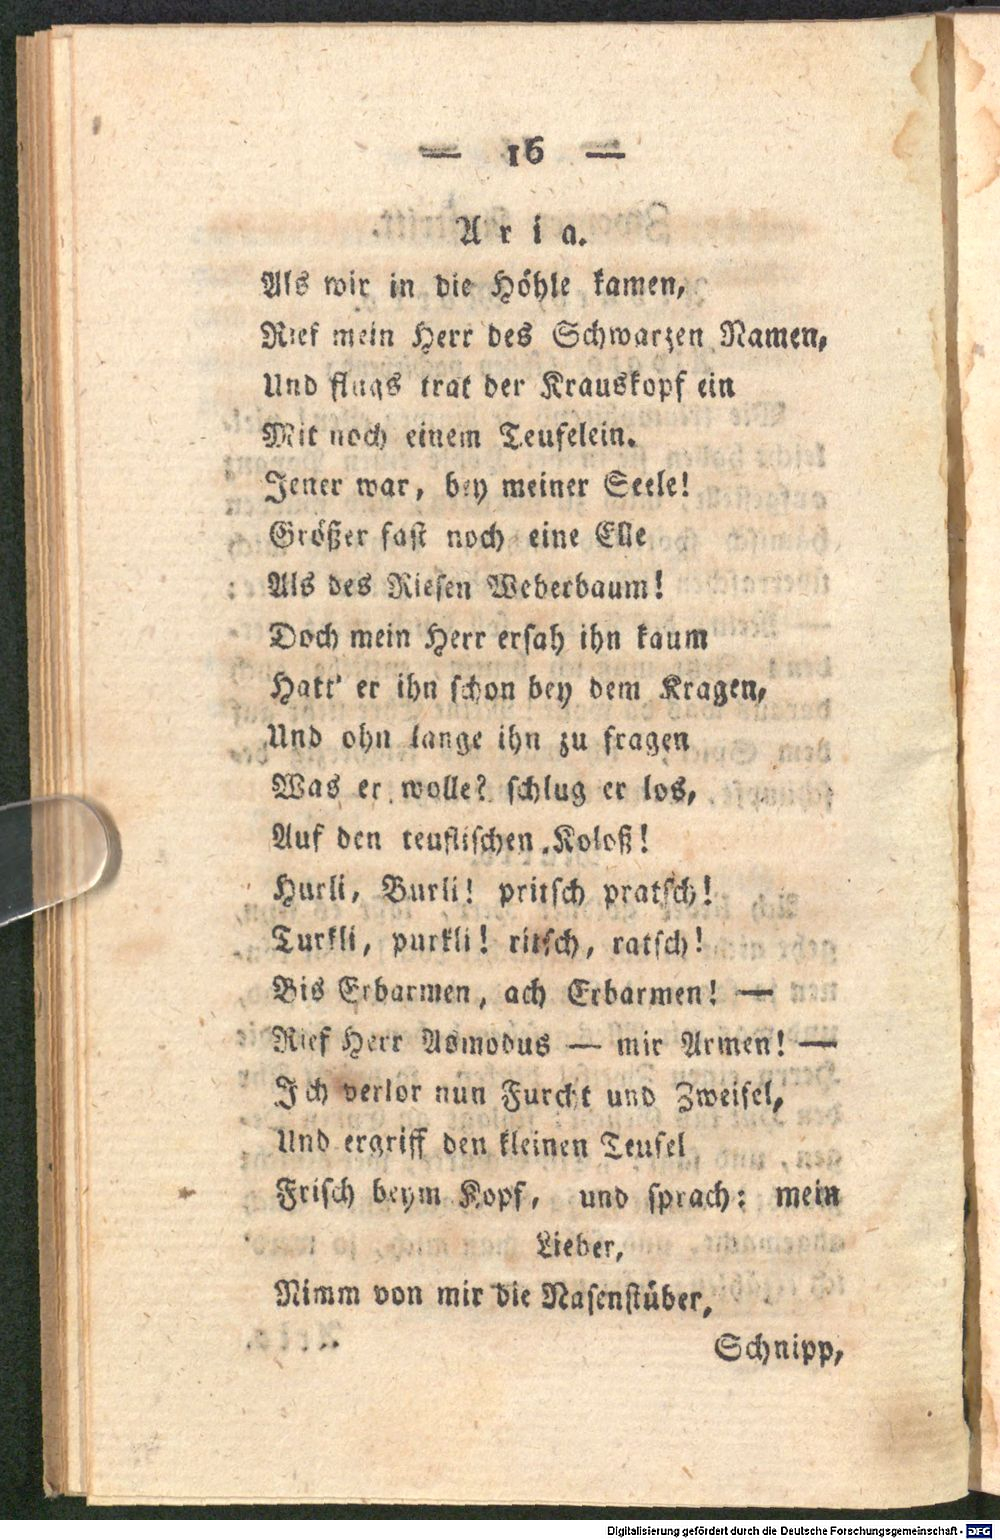 — 16 —
Aria.
Als wir in die Höhle kamen,
Rief mein Herr des Schwarzen Namen,
Und flugs trat der Krauskopf ein
Mit noch einem Teufelein.
Jener war, bey meiner Seele!
Größer fast noch eine Elle
Als des Riesen Weberbaum!
Doch mein Herr ersah ihn kaum
Hatt' er ihn schon bey dem Kragen,
Und ohn lange ihn zu fragen
Was er wolle? schlug er los,
Auf den teuflischen Koloß!
Hurli, Burli! pritsch pratsch!
Turkli, purkli! ritsch, ratsch!
Bis Erbarmen, ach Erbarmen! —
Rief Herr Asmodus — mir Armen! —
Ich verlor nun Furcht und Zweifel,
Und ergriff den kleinen Teufel
Frisch beym Kopf, und sprach: mein
Lieber,
Nimm von mir die Nasenstüber,
Schnipp,
Digitalisierung gefördert durch die Deutsche Forschungsgemeinschaft - DFG